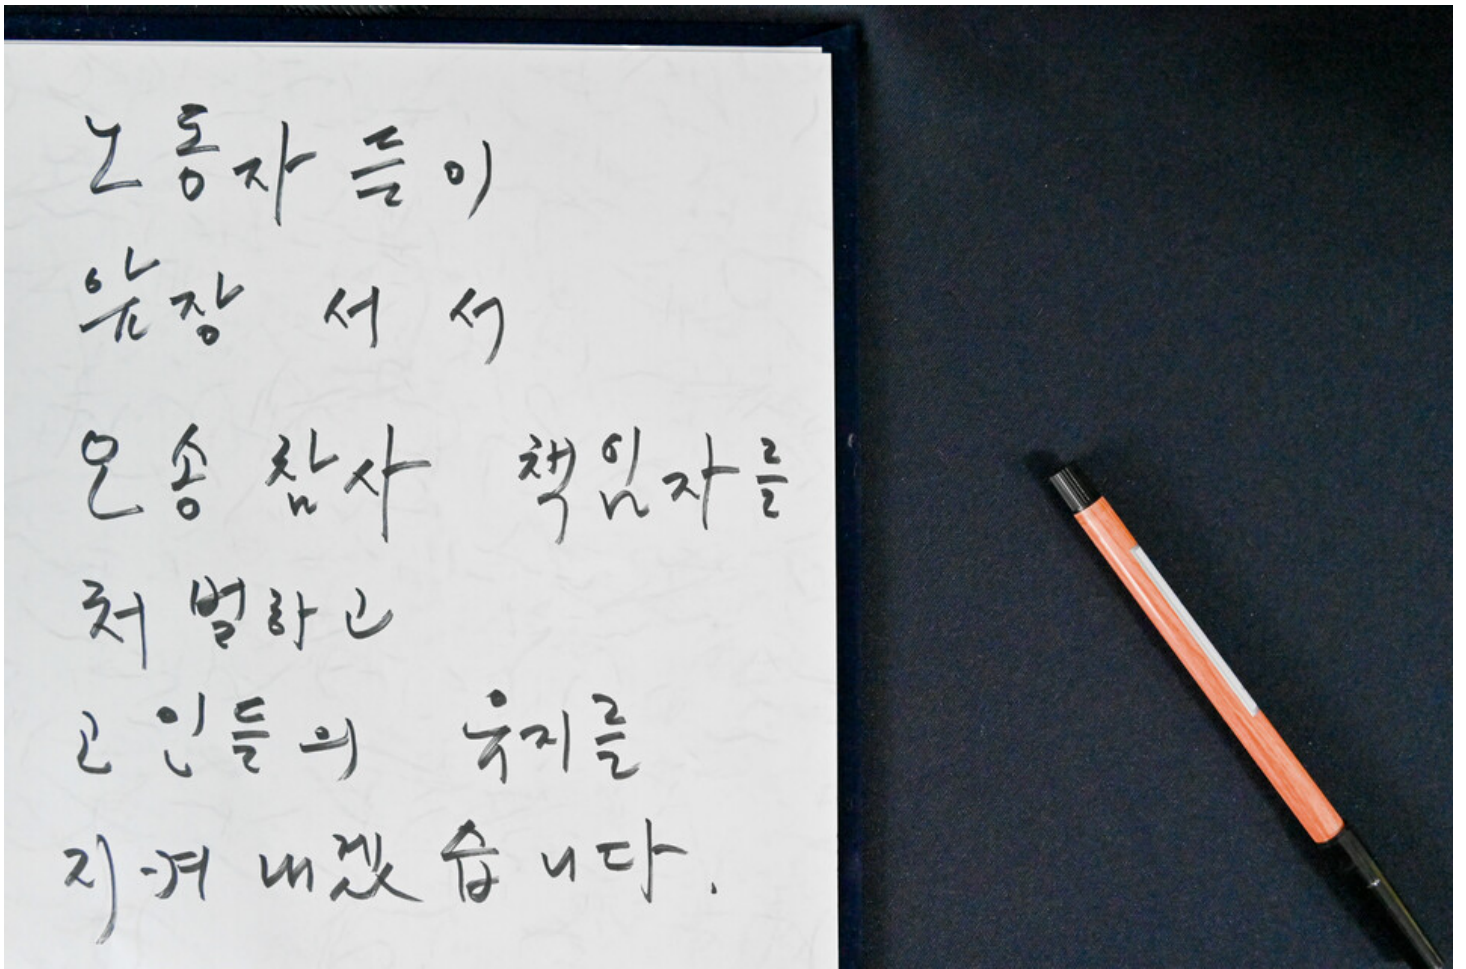 노동자들이
앞장 서서
오송 참사 책임자를
처벌하고
고인들의 유지를
지켜 내겠습니다.